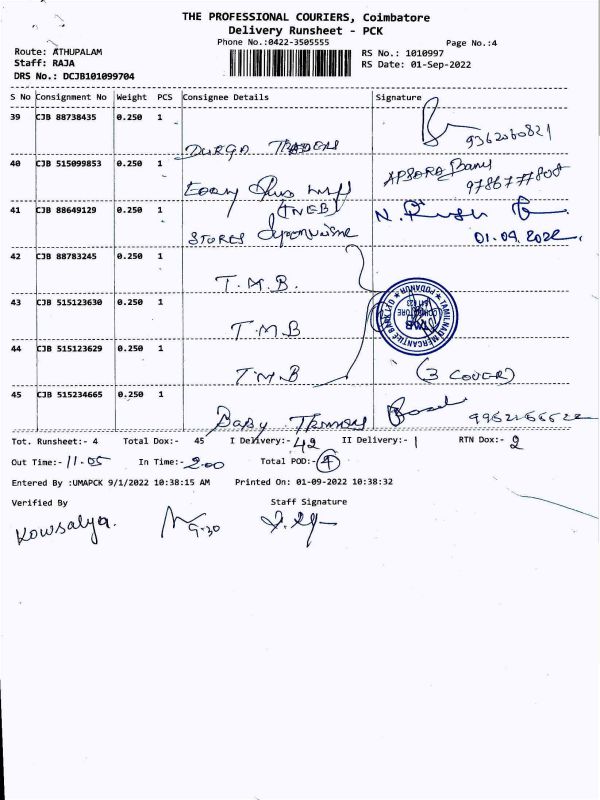 THE PROFESSIONAL COURIERS, Coimbatore
Delivery Runsheet - PCK
Phone No.:0422-3505555
Page No.:4
Route: ATHUPALAM
RS No.: 1010997
Staff: RAJA
RS Date: 01-Sep-2022
DRS No.: DCJB101099704
S No Consignment No Weight PCS Consignee Details Signature
39 CJB 88738435 0.250 1
DURGA TRADERS 9362060821
40 CJB 515099853 0.250 1
APSORA Banu
9786777808
41 CJB 88649129 0.250 1
(TNEB)
STORES
01.09.2022
42 CJB 88783245 0.250 1
T.M.B.
43 CJB 515123630 0.250 1
T.M.B
TAMILNAD MERCANTILE BANK LTD
PODANUR
COIMBATORE
TMB
44 CJB 515123629 0.250 1
T.M.B (3 COVER)
45 CJB 515234665 0.250 1
BABY
Tot. Runsheet:- 4 Total Dox:- 45 I Delivery:- 42 II Delivery:- 1 RTN Dox:- 2
Out Time:- 11.05 In Time:- 2.00 Total POD:- 4
Entered By :UMAPCK 9/1/2022 10:38:15 AM Printed On: 01-09-2022 10:38:32
Verified By Staff Signature
Kowsalya. 9.30